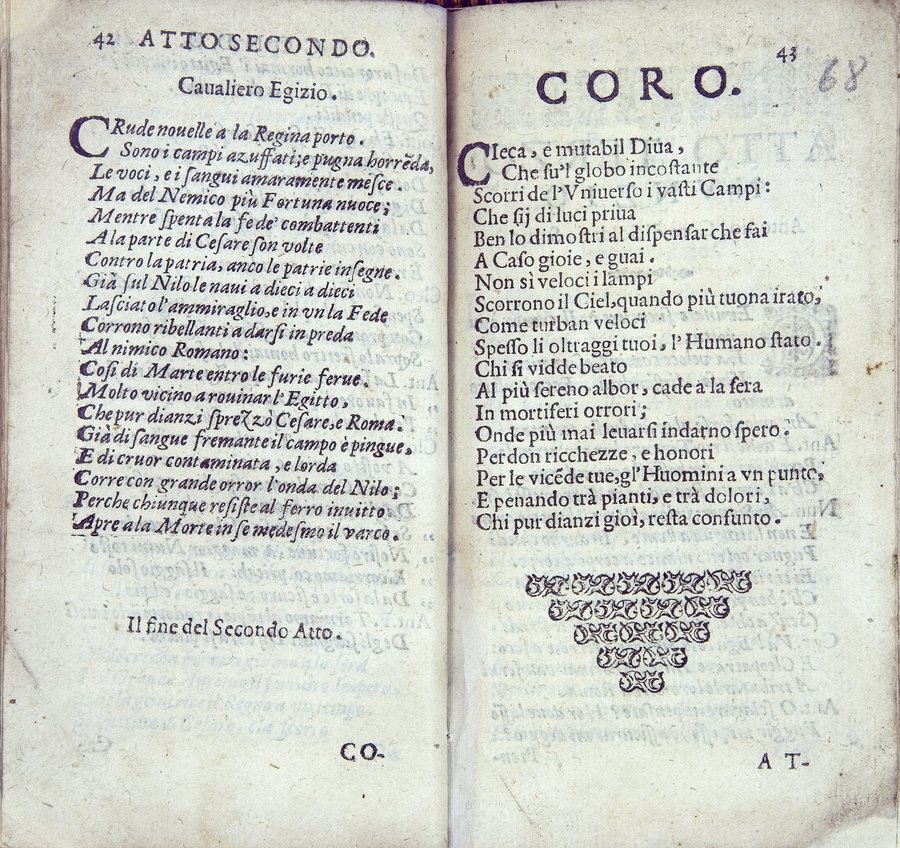 42 ATTO SECONDO.
Caualiero Egizio.
CRude nouelle a la Regina porto.
Sono i campi azuffati; e pugna horreda,
Le voci, e i sangui amaramente mesce.
Ma del Nemico più Fortuna nuoce;
Mentre spenta la fede combattenti
A la parte di Cesare son volte
Contro la patria, anco le patrie insegne.
Già sul Nilo le naui a dieci a dieci
Lasciato l'ammiraglio, e in vn la Fede
Corrono ribellanti a darsi in preda
Al nimico Romano:
Cosi di Marte entro le furie ferue.
Molto vicino a rouinar l'Egitto,
Che pur dianzi sprezzò Cesare, e Roma.
Già di sangue fremante il campo è pingue,
E di cruor contaminata, e lorda
Corre con grande orror l'onda del Nilo;
Perche chiunque resiste al ferro inuitto
Apre a la Morte in se medesmo il varco.
Il fine del Secondo Atto.
CO-
43
68
CORO.
CIeca, e mutabil Diua,
Che su'l globo incostante
Scorri de l'Vniuerso i vasti Campi:
Che sij di luci priua
Ben lo dimostri al dispensar che fai
A Caso gioie, e guai.
Non sì veloci i lampi
Scorrono il Ciel, quando più tuona irato,
Come turban veloci
Spesso li oltraggi tuoi, l'Humano stato.
Chi si vidde beato
Al più sereno albor, cade a la sera
In mortiferi orrori;
Onde più mai leuarsi indarno spero.
Perdon ricchezze, e honori
Per le vicéde tue, gl'Huomini a vn punto,
E penando trà pianti, e trà dolori,
Chi pur dianzi gioì, resta consunto.
A T-